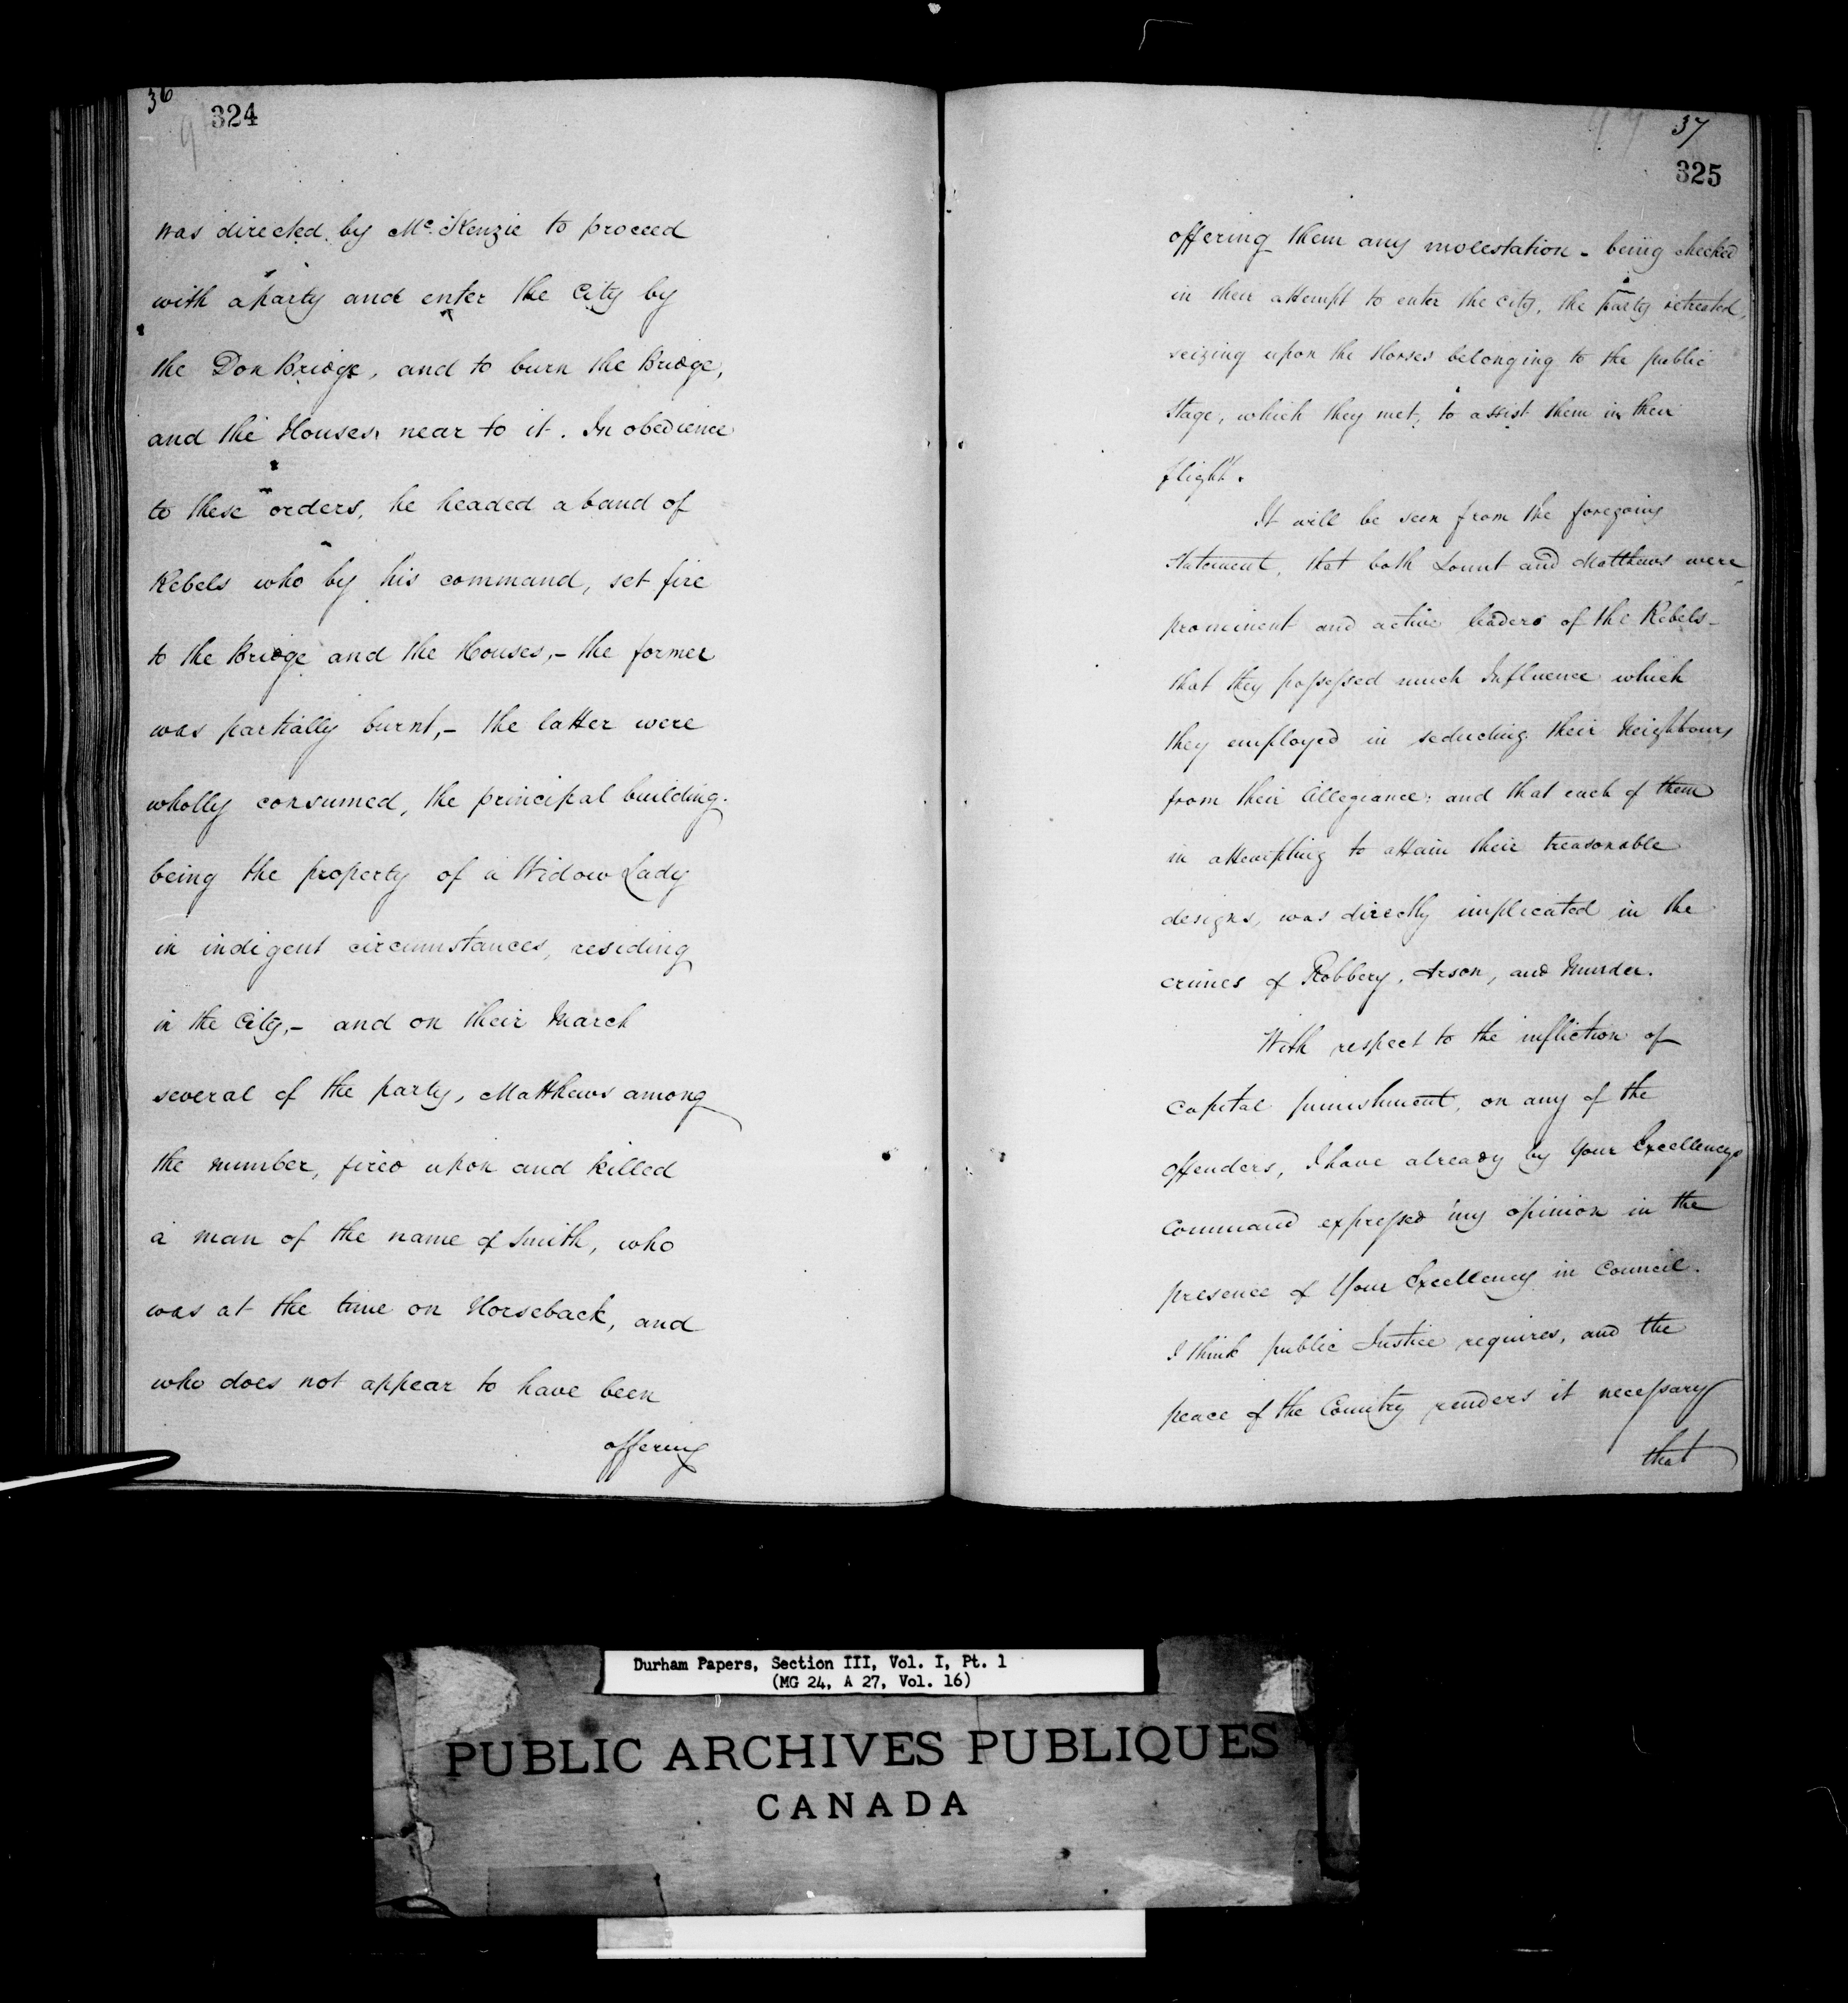 36
324
was directed by Mc.Kenzie to proceed
with a party and enter the City by
the Don Bridge, and to burn the Bridge,
and the Houses near to it. In obedience
to these orders, he headed a band of
Rebels who by his command, set fire
to the Bridge and the Houses,- the former
was partially burnt,- the latter were
wholly consumed, the principal building
being the property of a Widow Lady
in indigent circumstances, residing
in the City,- and on their March
several of the party, Matthews among
the number, fired upon and killed
a man of the name of Smith, who
was at the time on Horseback, and
who does not appear to have been
offering
37
325
offering them any molestation - being checked
in their attempt to enter the city, the party retreated,
seizing upon the Horses belonging to the public
Stage, which they met, to assist them in their
flight.
It will be seen from the foregoing
Statement, that both Lount and Matthews were
prominent and active leaders of the Rebels-
that they possessed much Influence which
they employed in seducing their Neighbours
from their Allegiance; and that each of them
in attempting to attain their treasonable
designs, was directly implicated in the
crimes of Robbery, Arson, and Murder.
With respect to the infliction of
Capital punishment, on any of the
Offenders, I have already by Your Excellencys
Command expressed my opinion in the
presence of Your Excellency in Council.
I think public Justice requires, and the
peace of the Country renders it necessary
that
Durham Papers, Section III, Vol. I, Pt. 1
(MG 24, A 27, Vol. 16)
PUBLIC ARCHIVES PUBLIQUES
CANADA